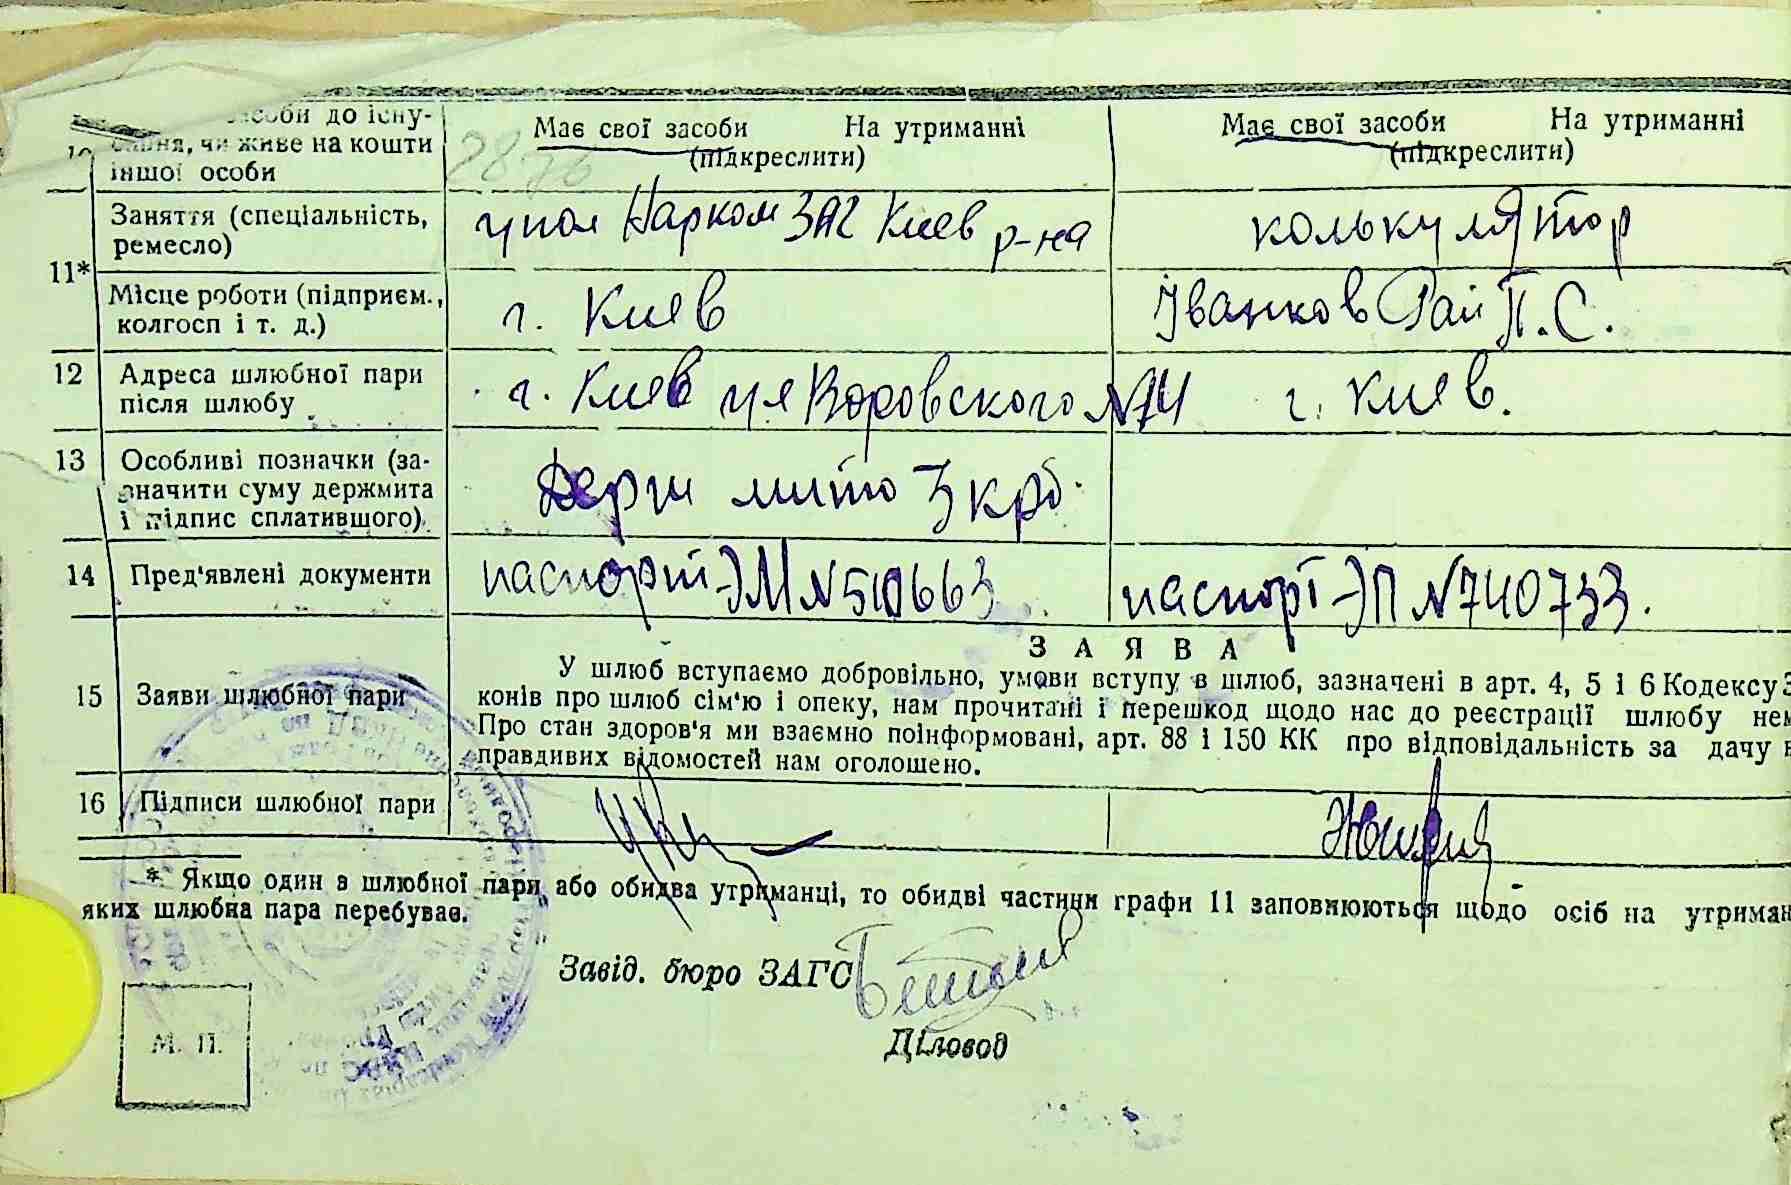 засоби до існу-
вання, чи живе на кошти
іншої особи
2876
Має свої засоби На утриманні
(підкреслити)
Має свої засоби На утриманні
(підкреслити)
11*
Заняття (спеціальність,
ремесло)
упол Нарком ЗАГ Киев р-на
колькулятор
Місце роботи (підприєм.,
колгосп і т. д.)
г. Киев
Іванков Рай П. С.
12
Адреса шлюбної пари
після шлюбу
г. Киев ул Воровского №14
г. Киев.
13
Особливі позначки (за-
значити суму держмита
і підпис сплатившого).
Держ мито 3 крб.
14
Пред'явлені документи
паспорт ЭМ №510663
паспорт ЭП №740733.
ЗАЯВА
15
Заяви шлюбної пари
У шлюб вступаємо добровільно, умови вступу в шлюб, зазначені в арт. 4, 5 і 6 Кодексу З
конів про шлюб сім'ю і опеку, нам прочитані і перешкод щодо нас до реєстрації шлюбу нем
Про стан здоров'я ми взаємно поінформовані, арт. 88 і 150 КК про відповідальність за дачу н
правдивих відомостей нам оголошено.
16
Підписи шлюбної пари
* Якщо один з шлюбної пари або обидва утриманці, то обидві частини графи 11 заповнюються щодо осіб на утриман
яких шлюбна пара перебуває.
Завід. бюро ЗАГС
Діловод
М. П.